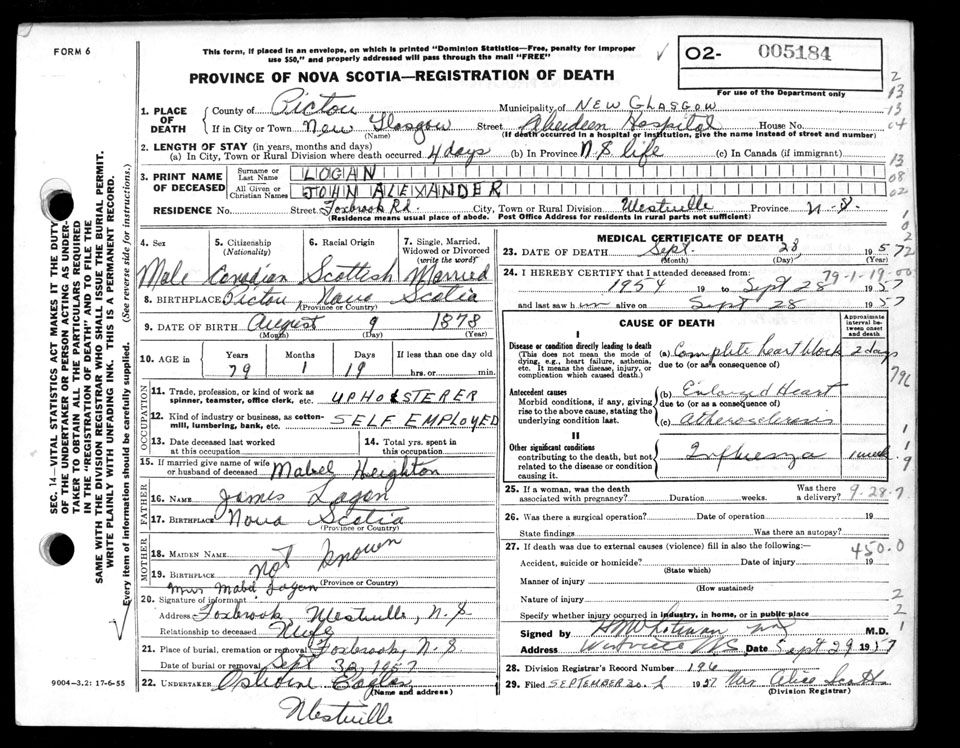 FORM 6
This form, if placed in an envelope, on which is printed "Dominion Statistics—Free, penalty for improper
use $50," and properly addressed will pass through the mail "FREE"
PROVINCE OF NOVA SCOTIA—REGISTRATION OF DEATH
02- 005184
For use of the Department only
2
13
13
04
13
08
02
1. PLACE OF DEATH
County of Pictou Municipality of NEW GLASGOW
If in City or Town New Glasgow Street Aberdeen Hospital House No.
(Name) (If death occurred in a hospital or institution, give the name instead of street and number)
2. LENGTH OF STAY (in years, months and days)
(a) In City, Town or Rural Division where death occurred 4 days (b) In Province N.S life (c) In Canada (if immigrant)
3. PRINT NAME OF DECEASED
Surname or Last Name LOGAN
All Given or Christian Names JOHN ALEIXANDER
RESIDENCE No. Street Foxbrook Rd. City, Town or Rural Division Westville Province N.S.
(Residence means usual place of abode. Post Office Address for residents in rural parts not sufficient)
4. Sex
Male
5. Citizenship (Nationality)
Canadian
6. Racial Origin
Scottish
7. Single, Married, Widowed or Divorced (write the word)
Married
8. BIRTHPLACE Pictou, Nova Scotia
(Province or Country)
9. DATE OF BIRTH August 9 1878
(Month) (Day) (Year)
10. AGE in
Years Months Days If less than one day old
79 1 19 hrs. or min.
OCCUPATION
11. Trade, profession, or kind of work as spinner, teamster, office clerk, etc. UPHOLSTERER
12. Kind of industry or business, as cotton-mill, lumbering, bank, etc. SELF EMPLOYED
13. Date deceased last worked at this occupation
14. Total yrs. spent in this occupation
15. If married give name of wife or husband of deceased Mabel Heighton
FATHER
16. NAME James Logan
17. BIRTHPLACE Nova Scotia
(Province or Country)
MOTHER
18. MAIDEN NAME
19. BIRTHPLACE Not Known
(Province or Country)
Mrs Mabel Logan
20. Signature of informant
Address Foxbrook, Westville, N.S
Relationship to deceased Wife
21. Place of burial, cremation or removal Foxbrook, N.S
Date of burial or removal Sept 30, 1957
22. UNDERTAKER
(Name and address)
Westville
9004—3.2: 17-6-55
SEC. 14—VITAL STATISTICS ACT MAKES IT THE DUTY
OF THE UNDERTAKER OR PERSON ACTING AS UNDER-
TAKER TO OBTAIN ALL THE PARTICULARS REQUIRED
IN THE "REGISTRATION OF DEATH" AND TO FILE THE
SAME WITH THE DIVISION REGISTRAR WHO SHALL ISSUE THE BURIAL PERMIT.
WRITE PLAINLY WITH UNFADING INK. THIS IS A PERMANENT RECORD.
Every item of information should be carefully supplied. (See reverse side for instructions.)
MEDICAL CERTIFICATE OF DEATH
23. DATE OF DEATH Sept. 28, 1957
(Month) (Day)
72
24. I HEREBY CERTIFY that I attended deceased from:
79-1-19-00
1954 19 to Sept 28 1957
and last saw him alive on Sept 28 1957
CAUSE OF DEATH
Approximate interval between onset and death
I
Disease or condition directly leading to death
(This does not mean the mode of dying, e.g., heart failure, asthenia, etc. It means the disease, injury, or complication which caused death.)
(a) Complete heart block 2 days
due to (or as a consequence of)
Antecedent causes
Morbid conditions, if any, giving rise to the above cause, stating the underlying condition last.
(b) Enlarged Heart
due to (or as a consequence of)
(c)
II
Other significant conditions
contributing to the death, but not related to the disease or condition causing it.
Influenza 1 week
25. If a woman, was the death associated with pregnancy? Duration weeks. Was there a delivery? 9-28-7
26. Was there a surgical operation? Date of operation 19
State findings Was there an autopsy?
27. If death was due to external causes (violence) fill in also the following:
450.0
Accident, suicide or homicide? Date of injury 19
(State which)
Manner of injury
(How sustained)
Nature of injury
Specify whether injury occurred in industry, in home, or in public place
Signed by M.D.
Address Westville NS Date Sept 29 1957
28. Division Registrar's Record Number 196
29. Filed SEPTEMBER 30 1957 Mrs Alice Scott
(Division Registrar)